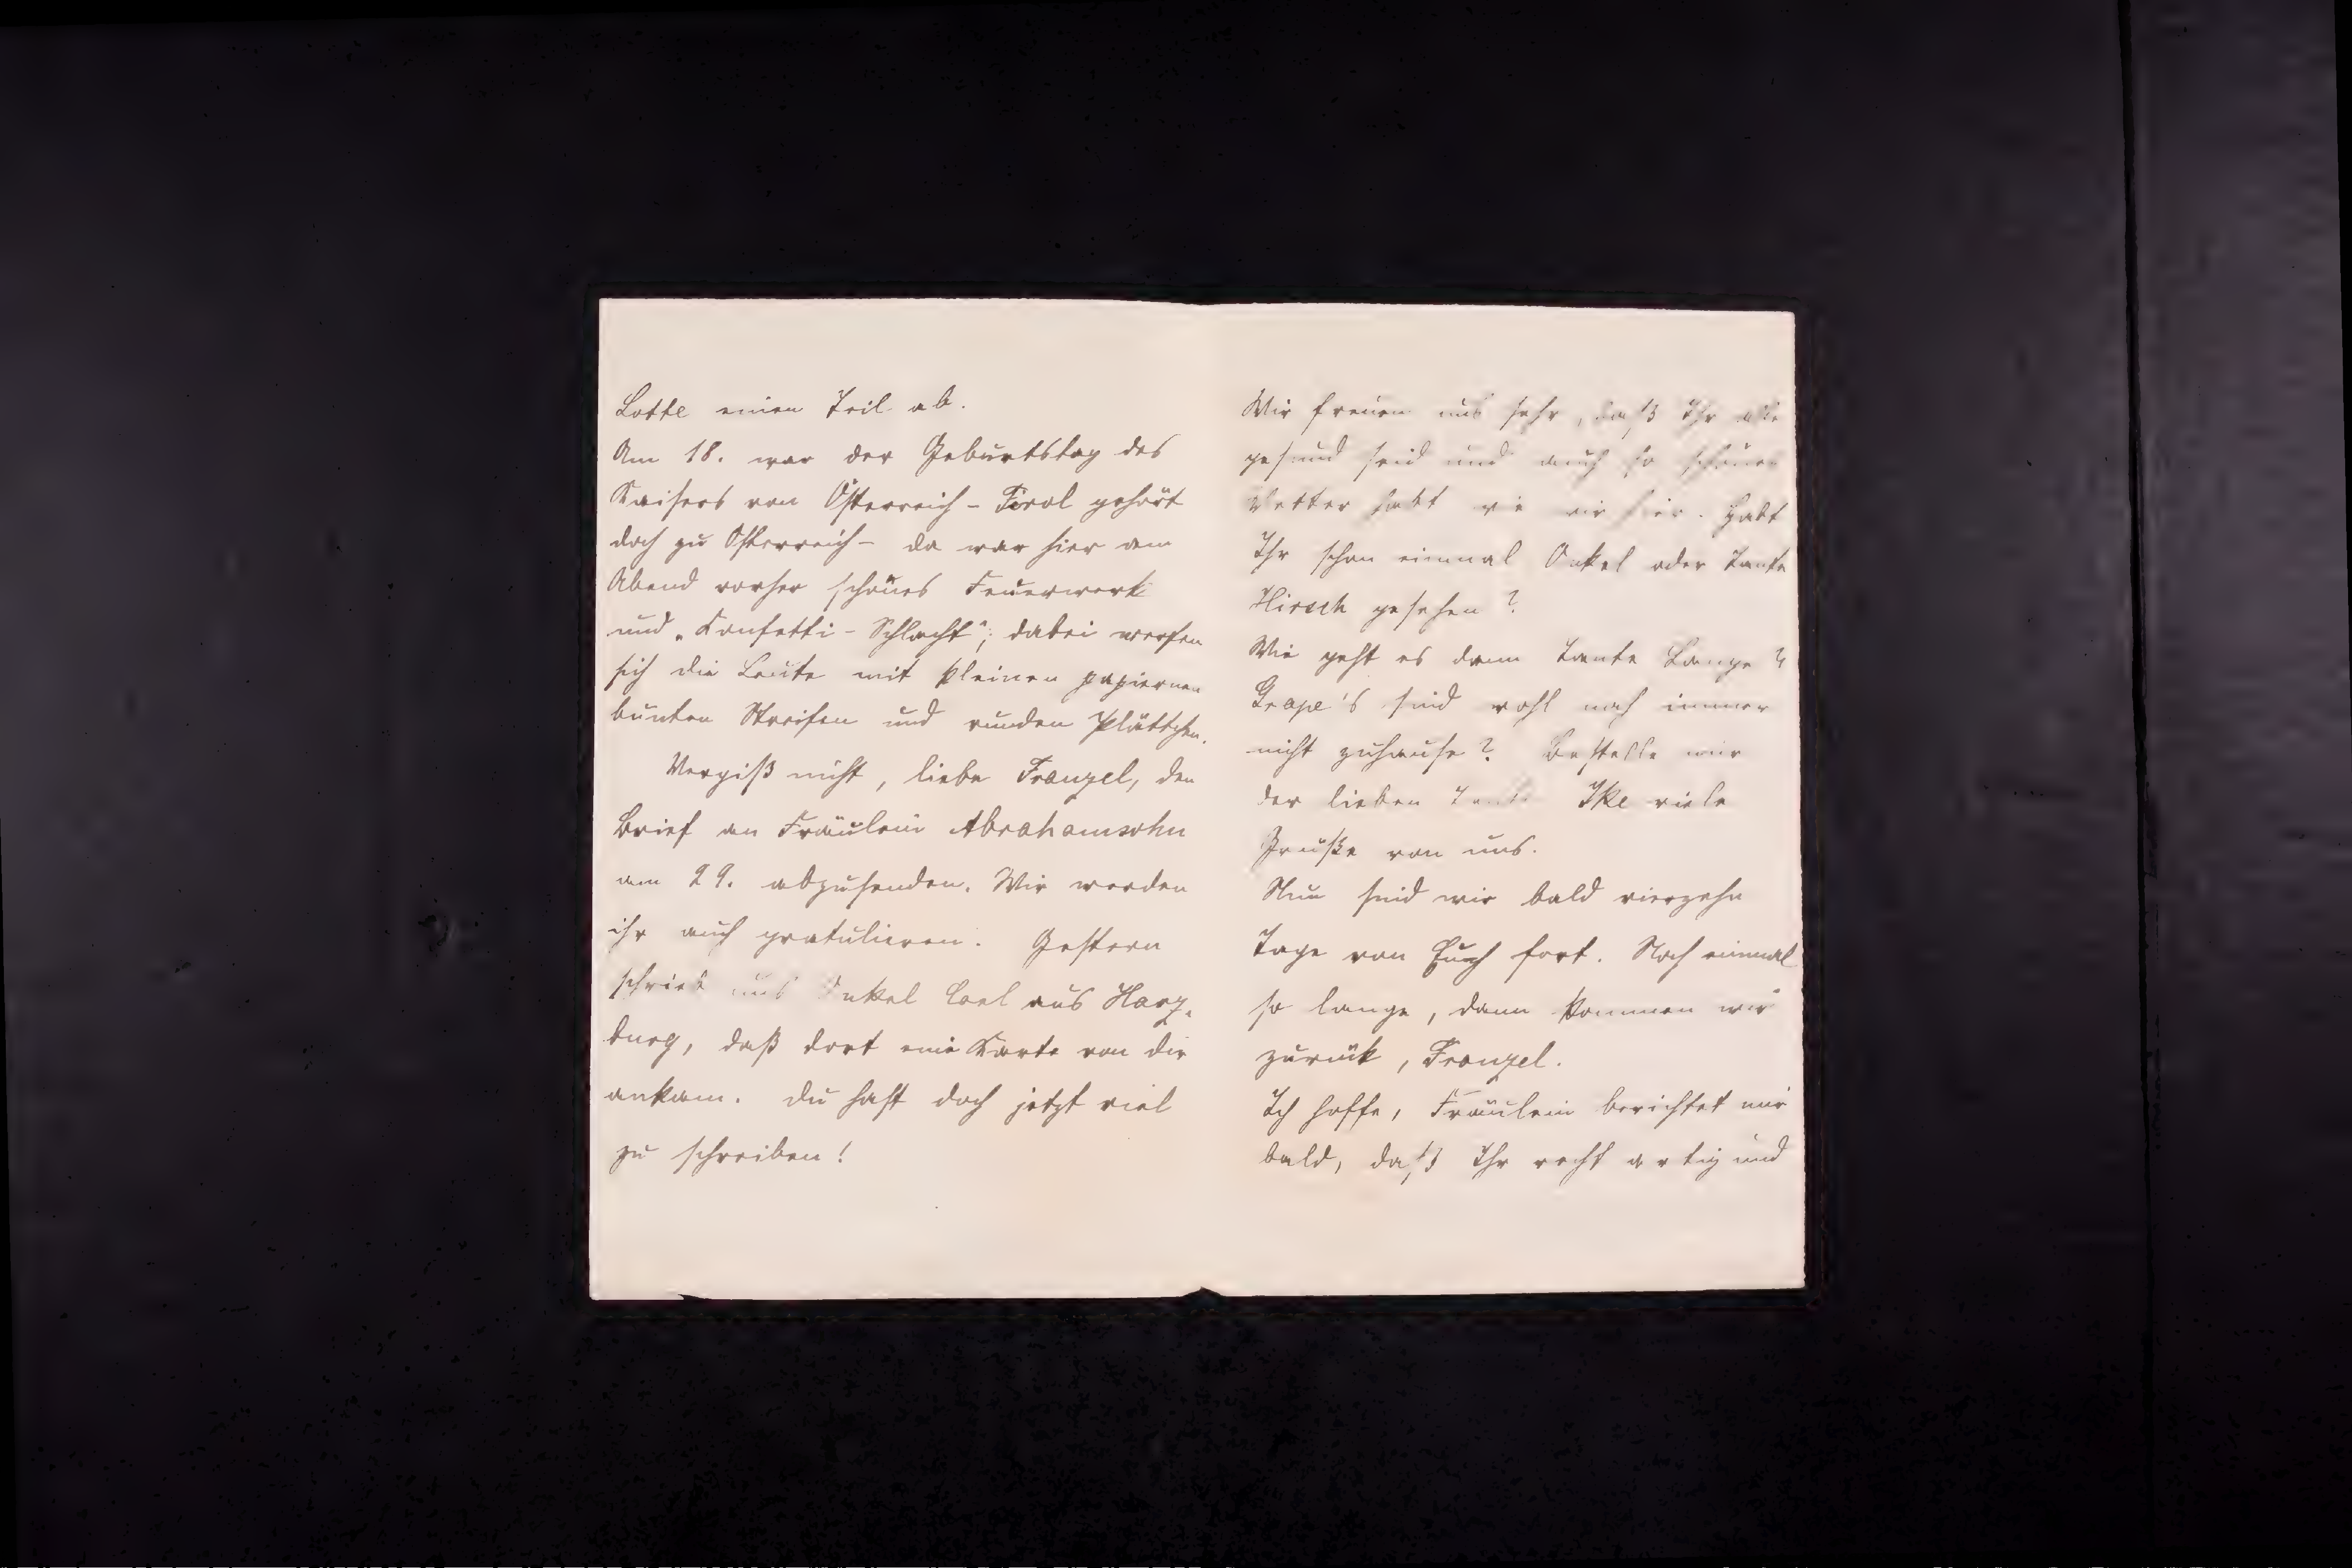 Lotte einen Teil ab.
Am 18. war der Geburtstag des
Kaisers von Österreich - Tirol gehört
doch zu Österreich - da war hier am
Abend vorher schönes Feuerwerk
und „Konfetti-Schlacht“; dabei werfen
sich die Leute mit kleinen papiernen
bunten Streifen und runden Plättchen.
Vergiß nicht, liebe Franzel, den
Brief an Fräulein Abrahamsohn
am 29. abzusenden. Wir werden
ihr auch gratulieren. Gestern
schrieb uns Onkel Carl aus Harz-
burg, daß dort eine Karte von dir
ankam. Du hast doch jetzt viel
zu schreiben!
Wir freuen uns sehr, daß Ihr alle
gesund seid und auch so schönes
Wetter habt wie wir hier. Habt
Ihr schon einmal Onkel oder Tante
Hirsch gesehen?
Wie geht es denn Tante Lange?
Grape's sind wohl noch immer
nicht zuhause? Bestelle mir
der lieben Tante Ike viele
Grüße von uns.
Nun sind wir bald vierzehn
Tage von Euch fort. Noch einmal
so lange, dann kommen wir
zurück, Franzel.
Ich hoffe, Fräulein berichtet mir
bald, daß Ihr recht artig und